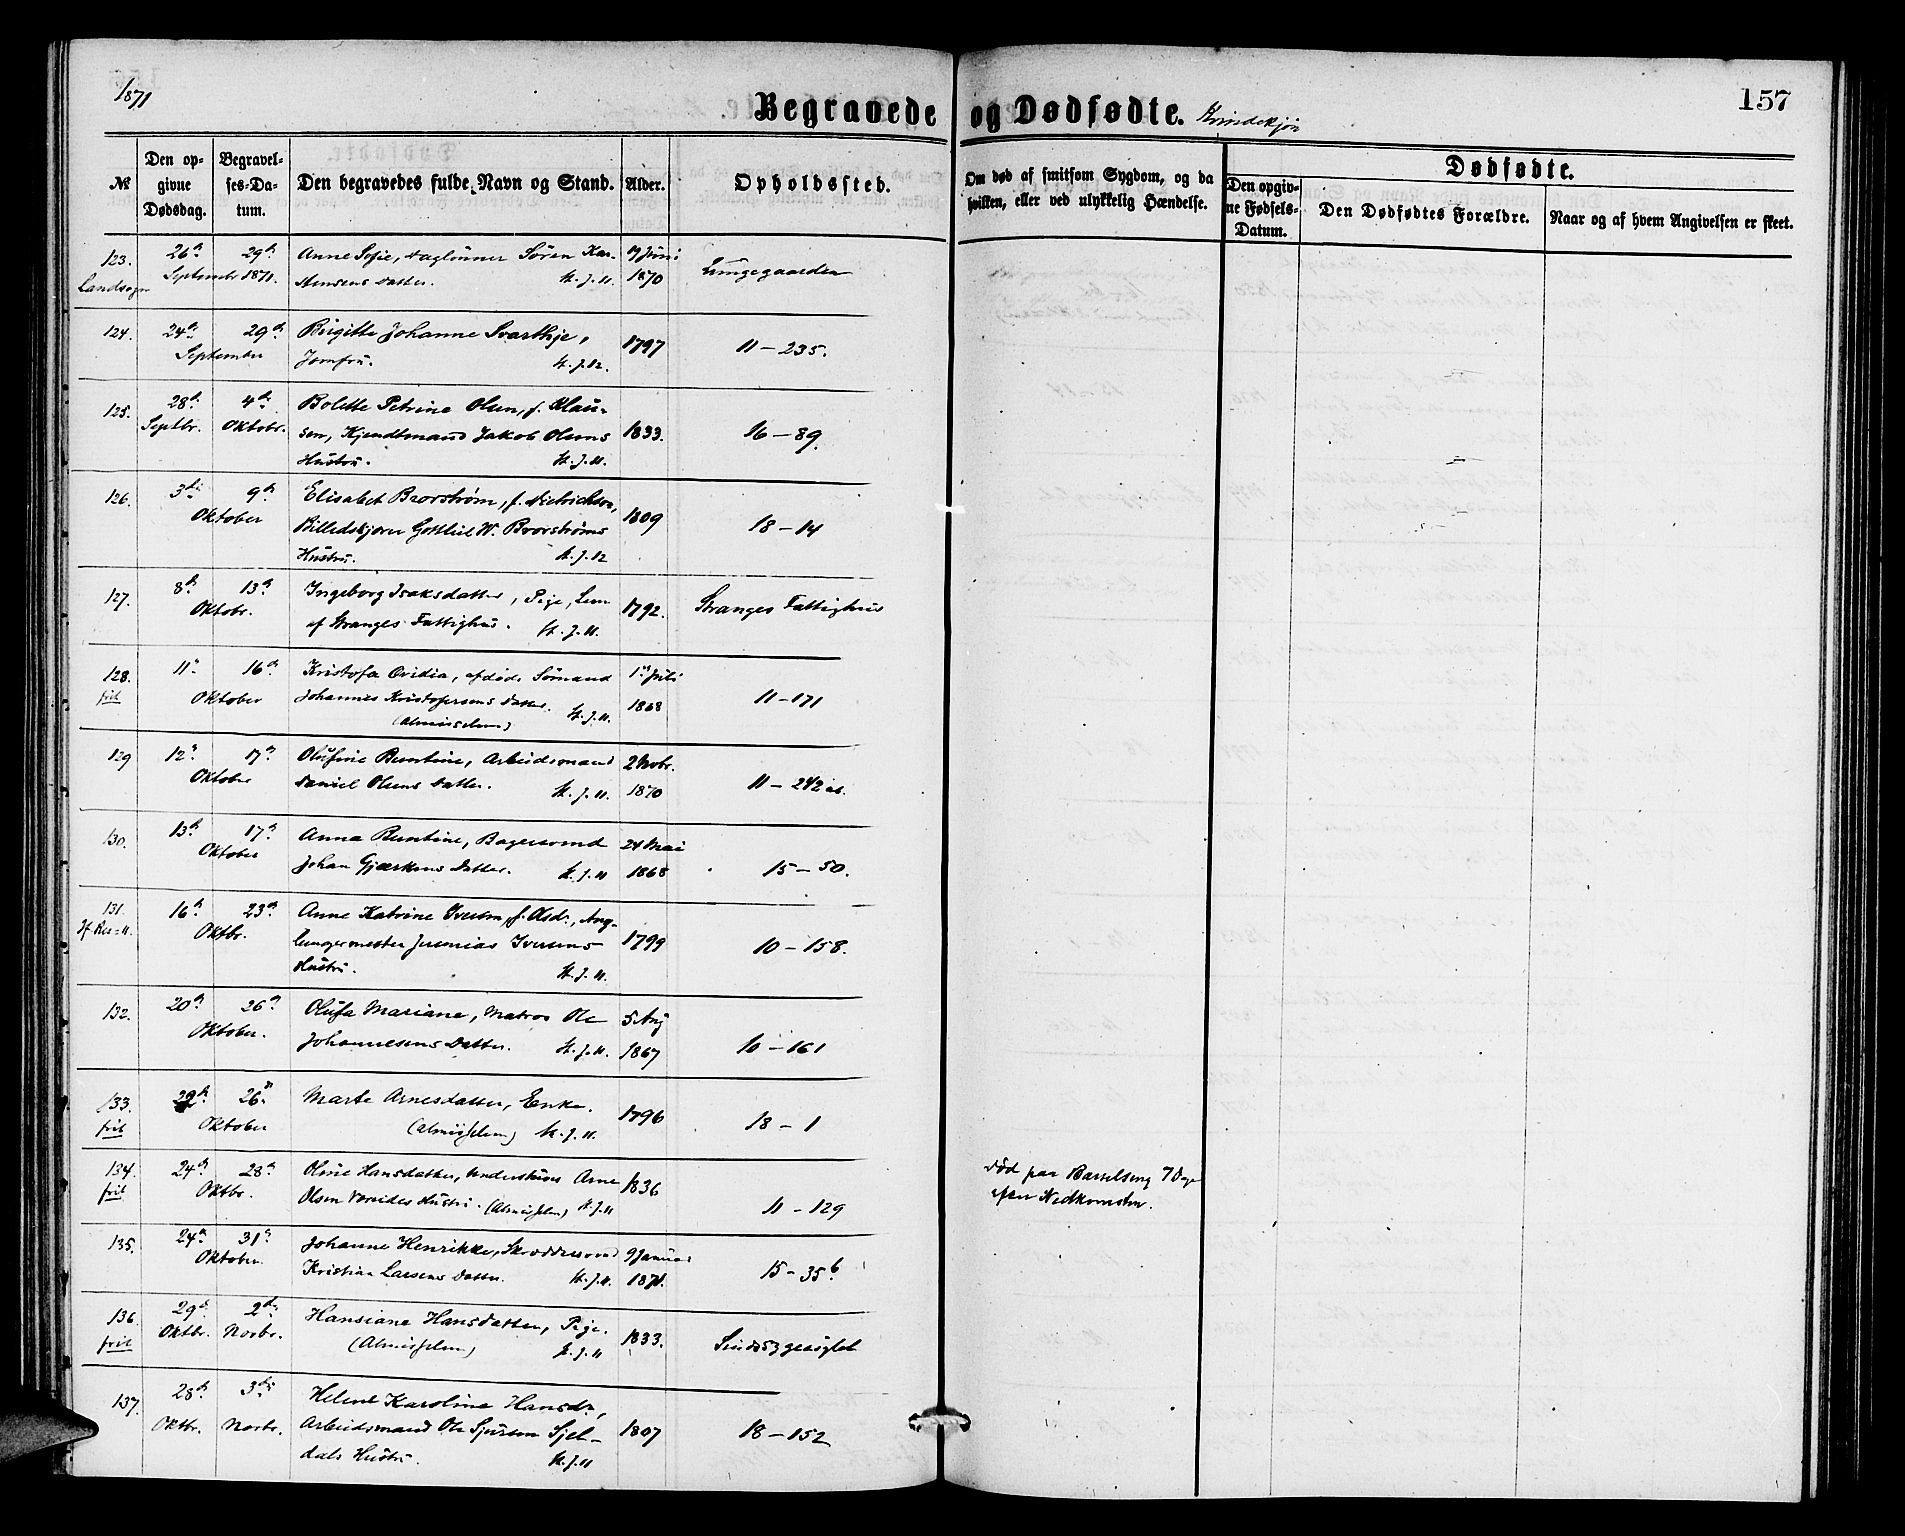 1871
Begravede og Dødfødte. Kvindekjøn
157
№
Den opgivne Dødsdag.
Begravelses-Datum.
Den begravedes fulde Navn og Stand.
Alder.
Opholdssted.
Om død af smitsom Sygdom, og da hvilken, eller ved ulykkelig Hændelse.
Dødfødte.
Den opgivne Fødsels-Datum.
Den Dødfødtes Forældre.
Naar og af hvem Angivelsen er skeet.
123. 26de 29de Anne Sofie, Daglønner Søren Kar- 17 Juni
Landsogn September 1871. stensens Datter. St. J. 11. 1870 Lungegaarden
124. 24de 29de Brigitte Johanne Svarthje,
September Jomfru. St. J. 12. 1797 11 – 235.
125. 28de 4de Bolette Petrine Olsen, f. Klau-
Septbr. Oktobr. sen, Kjendtmand Jakob Olsens 1833. 16 – 89.
Hustru. St. J. 11.
126. 3die 9de Elisabet Brorstrøm, f. Dietrichson,
Oktober Billedskjærer Gottlieb W. Brorstrøms 1809 18 – 14
Hustru. St. J. 12
127. 8de 13de Ingeborg Isaksdatter, Pige, Lem
Oktobr. af Stranges Fattighus. St. J. 11. 1792. Stranges Fattighus
128. 11te 16de Kristofa Ovidia, afdøde Sømand 1ste Juli
frit Oktober Johannes Kristofersens Datter. 1868 11 – 171
(Almisselem) St. J. 11.
129 12te 17de Olufine Berntine, Arbeidsmand 2 Novbr.
Oktober Daniel Olsens Datter. St. J. 11. 1870 11 – 242
130. 13de 17de Anna Berntine, Bagersvend 24 Mai
Oktober Johan Gjærkens Datter. St. J. 11 1868 15 – 50.
131. 16de 23de Anne Katrine Iversen, f. Olsdr.,
Oktbr. Jeremias Iversens 1799 10 – 158.
Hustru. St. J. 11.
132. 20de 26de Olufa Mariane, Matros Ole 5 Aug
Oktober. Johannesens Datter. St. J. 11. 1867 10 – 161
133. 22de 26de Marte Arnesdatter, Enke. 1796
frit Oktober (Almisselem) St. J. 11. 18 – 1
134. 24de 28de Oline Hansdatter, Arne 1836 død paa Barselseng 7 Dage
frit Oktbr. Olsen Hustru. (Almisselem) St. J. 11 11 – 129 efter Nedkomsten.
135. 24de 31te Johanne Henrikke, Skræddersvend 9 Januar
Oktober. Kristian Larsens Datter. St. J. 11. 1871. 15 – 35b
136. 29de 2den Hansiane Hansdatter, Pige.
frit Oktbr. Novbr. (Almisselem) St. J. 11 1833. Sindssygeasylet
137. 28de 3die Helene Karoline Hansdr.,
Oktbr. Novbr. Arbeidsmand Ole Sjursen Sjel- 1807 18 – 152
dals Hustru. St. J. 11